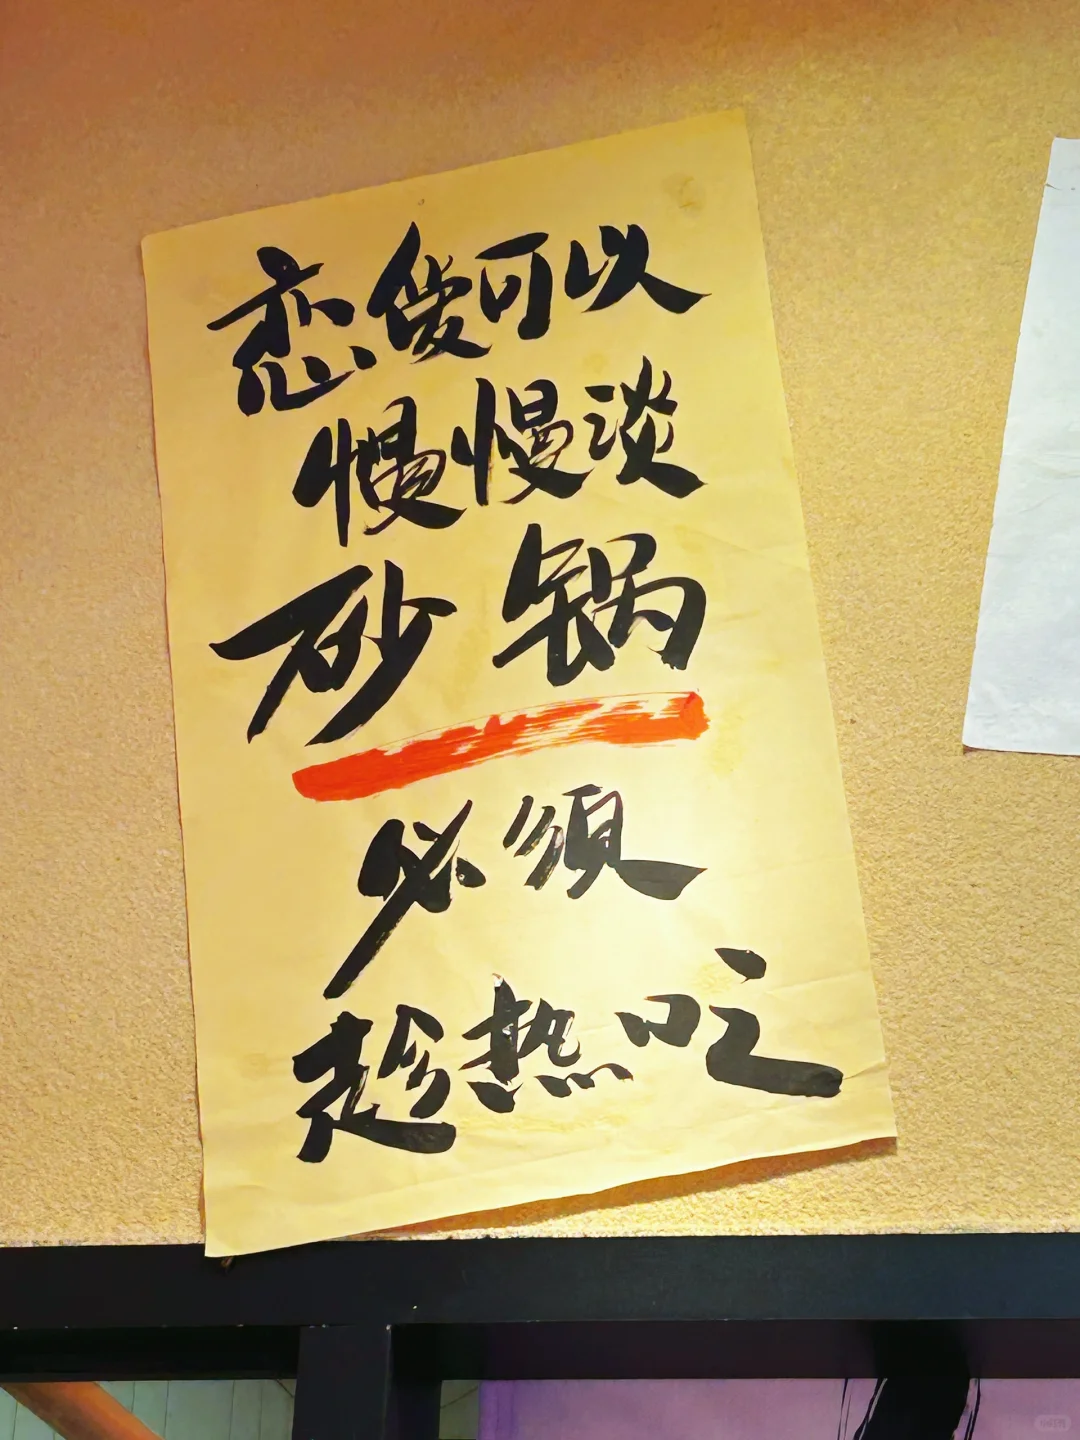 恋爱可以
慢慢谈
砂锅
必须
趁热吃